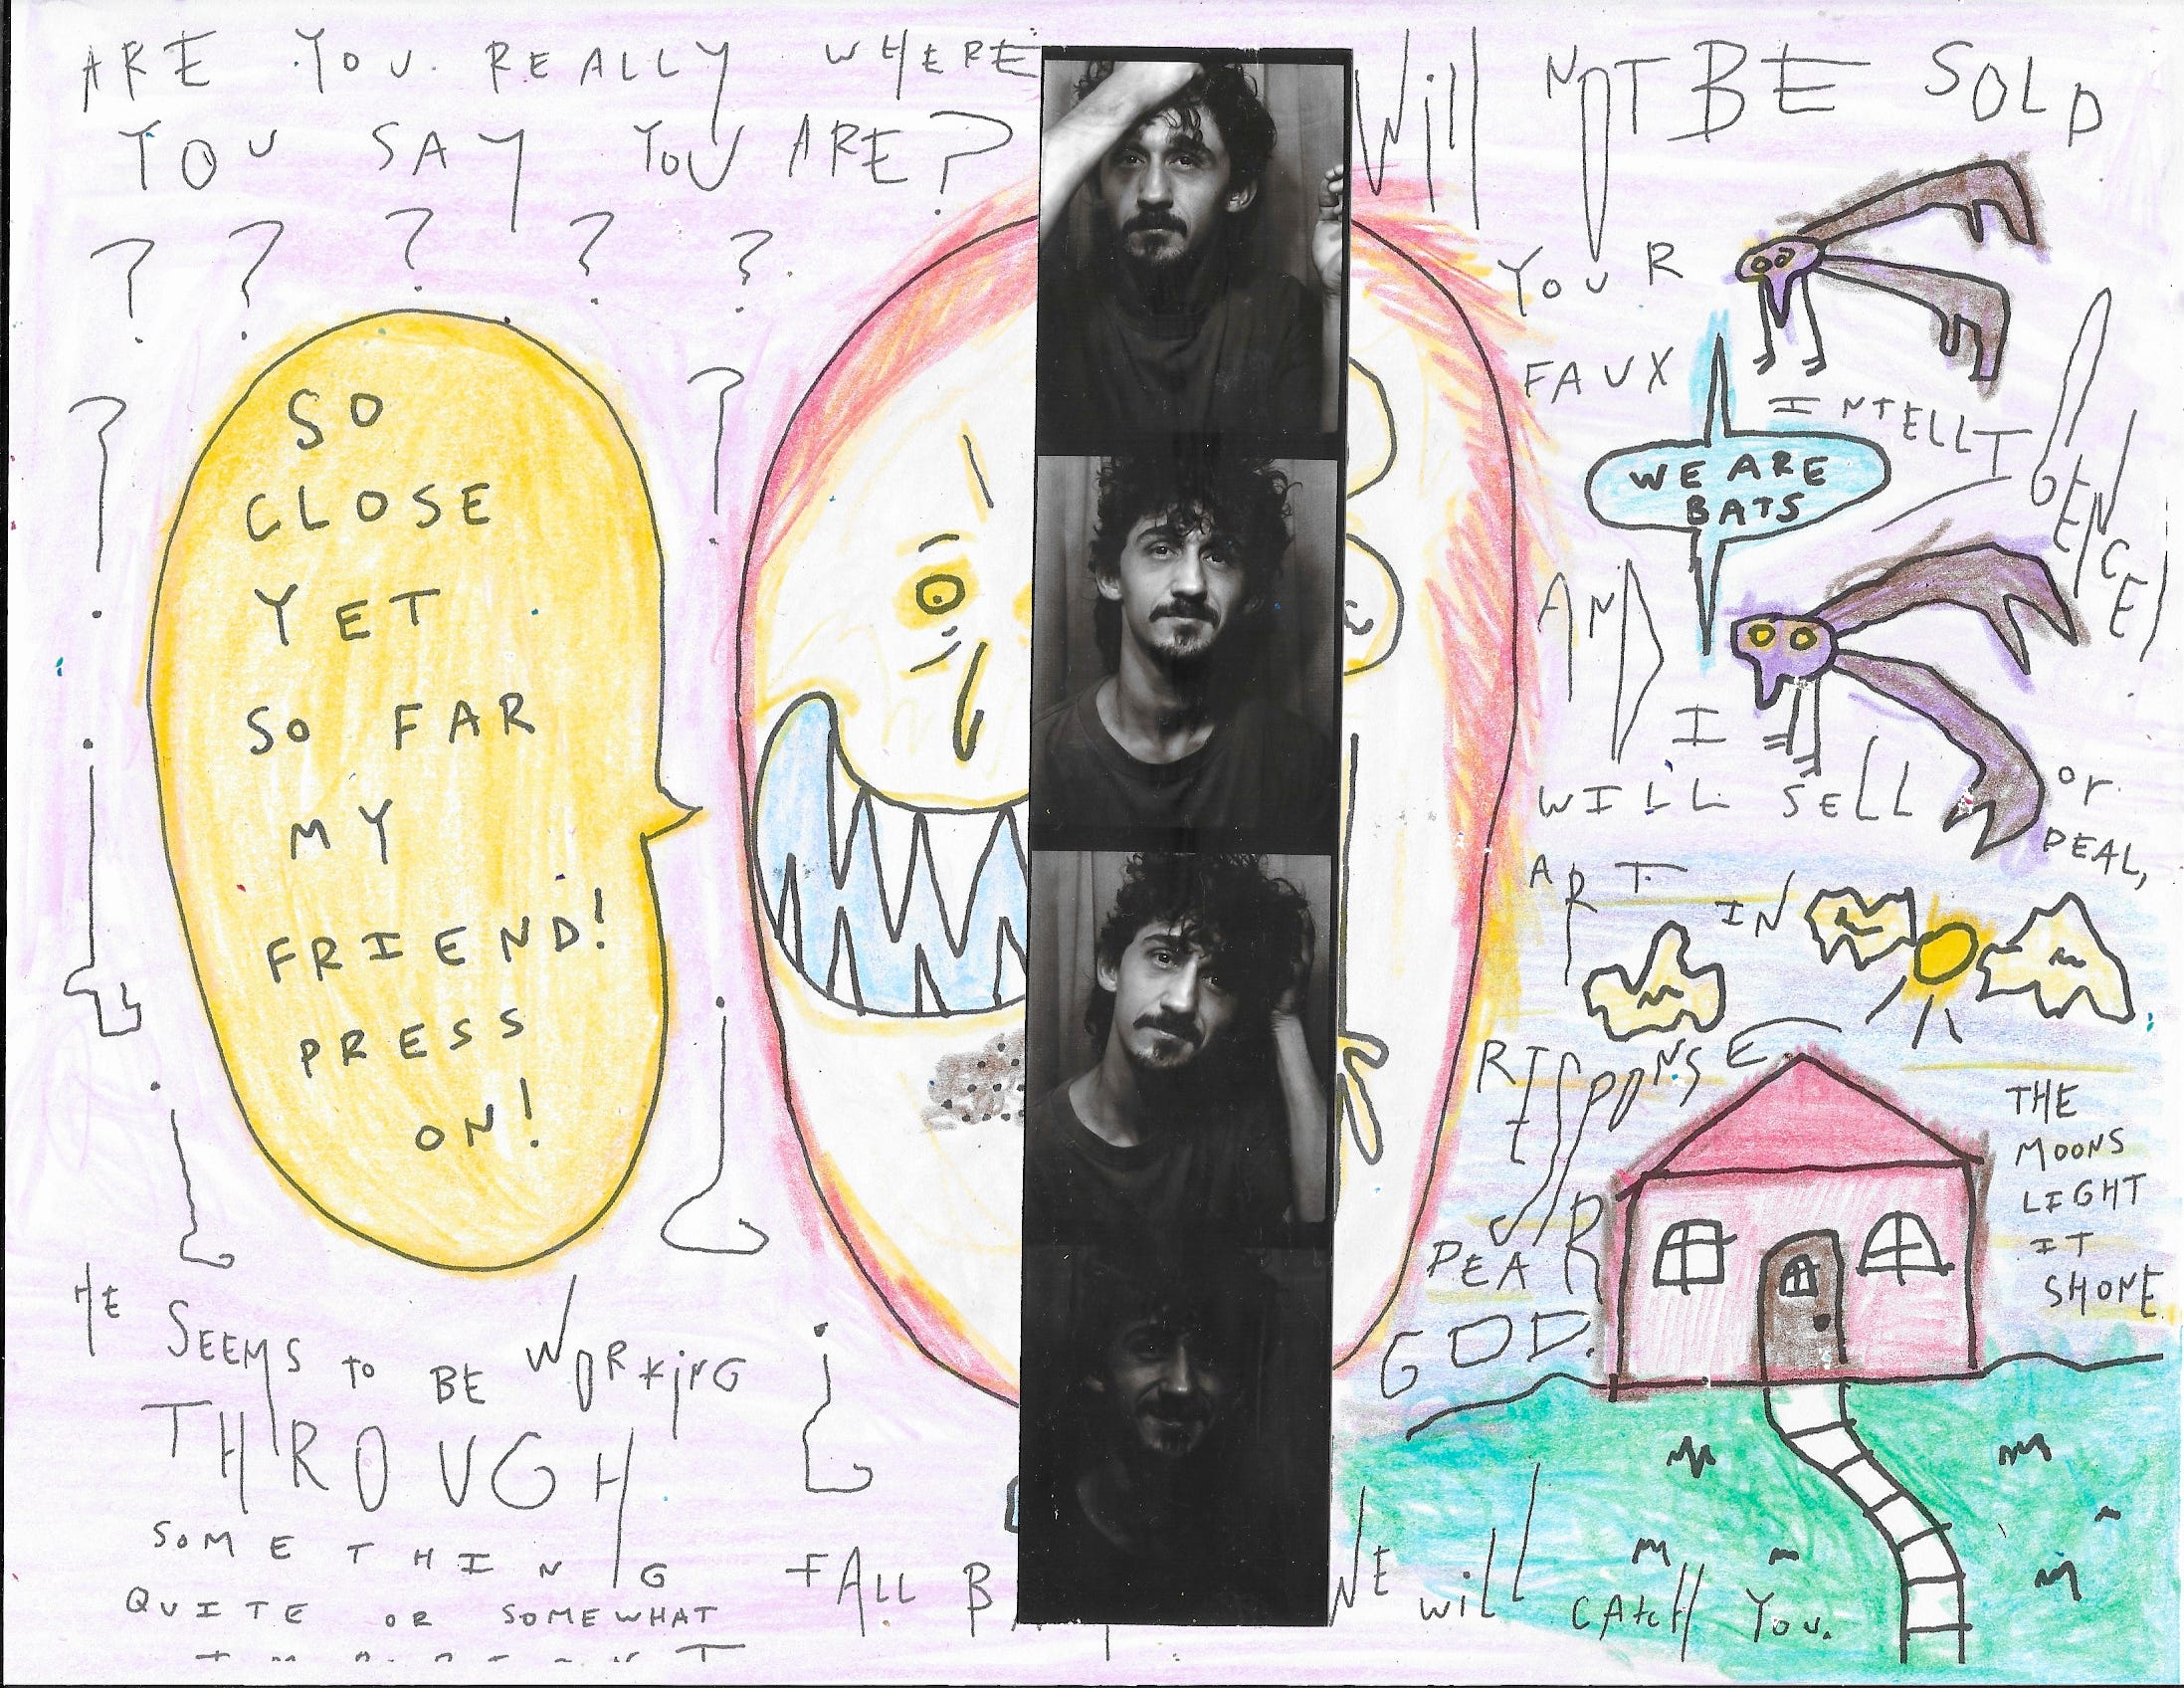 ARE YOU REALLY WHERE
YOU SAY YOU ARE?
? ? ? ? ?
? ?
SO
CLOSE
YET
SO FAR
MY
FRIEND!
PRESS
ON!
Will NOT BE SOLD
YOUR
FAUX
INTELLIGENCE
WE ARE
BATS
AND I
WILL SELL or
DEAL,
ART IN
RESPONSE
DEAR
GOD.
THE
MOONS
LIGHT
IT
SHONE
HE SEEMS TO BE WORKiNG
THROUGH
SOMETHING
QUITE OR SOMEWHAT
FALL
WE Will CAtcH YOU.